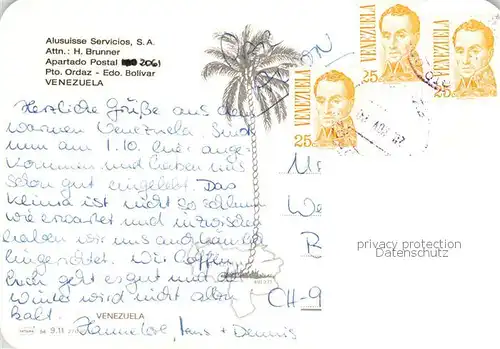 Alusuisse Servicios, S.A.
Attn.: H. Brunner
Apartado Postal 206
Pto. Ordaz - Edo. Bolívar
VENEZUELA
VENEZUELA
25
VENEZUELA
25
VENEZUELA
25
Herzliche Grüße aus dem
warmen Venezuela. Sind
nun am 1.10. hier ange-
kommen und haben uns
schon gut eingelebt. Das
Klima ist nicht so schlimm
wie erwartet und inzwischen
haben wir uns auch
eingerichtet. Wir hoffen,
Euch geht es gut und der
Winter wird nicht allzu
kalt.
Hannelore, Jens + Dennis
CH-9
privacy protection
Datenschutz
VENEZUELA
9.11